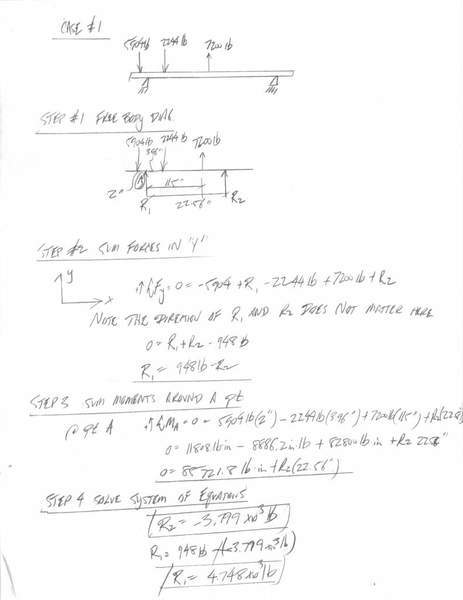 CASE #1
5904lb 2244lb 7200lb
STEP #1 FREE Body DIAG.
5904lb 2244lb 7200lb
3.96"
2" A 115"
R1 22.56" R2
STEP #2 SUM FORCES IN "Y"
y
x
↑ΣFy = 0 = -5904 + R1 - 2244 lb + 7200 lb + R2
NOTE THE DIRECTION OF R1 AND R2 DOES NOT MATTER HERE
0 = R1 + R2 - 948 lb
R1 = 948 lb - R2
STEP 3 SUM MOMENTS AROUND A pt
@ pt A ΣMA = 0 = 5904 lb (2") - 2244 lb (3.96") + 7200 lb (11.5") + R2 (22.56
0 = 11808 lb·in - 8886.2 in·lb + 82800 lb·in + R2 22.56"
0 = 85721.8 lb·in + R2 (22.56")
STEP 4 SOLVE SYSTEM OF EQUATIONS
R2 = -3.799 x10^3 lb
R1 = 948 lb - (-3.799 x10^3 lb)
R1 = 4.748 x10^3 lb